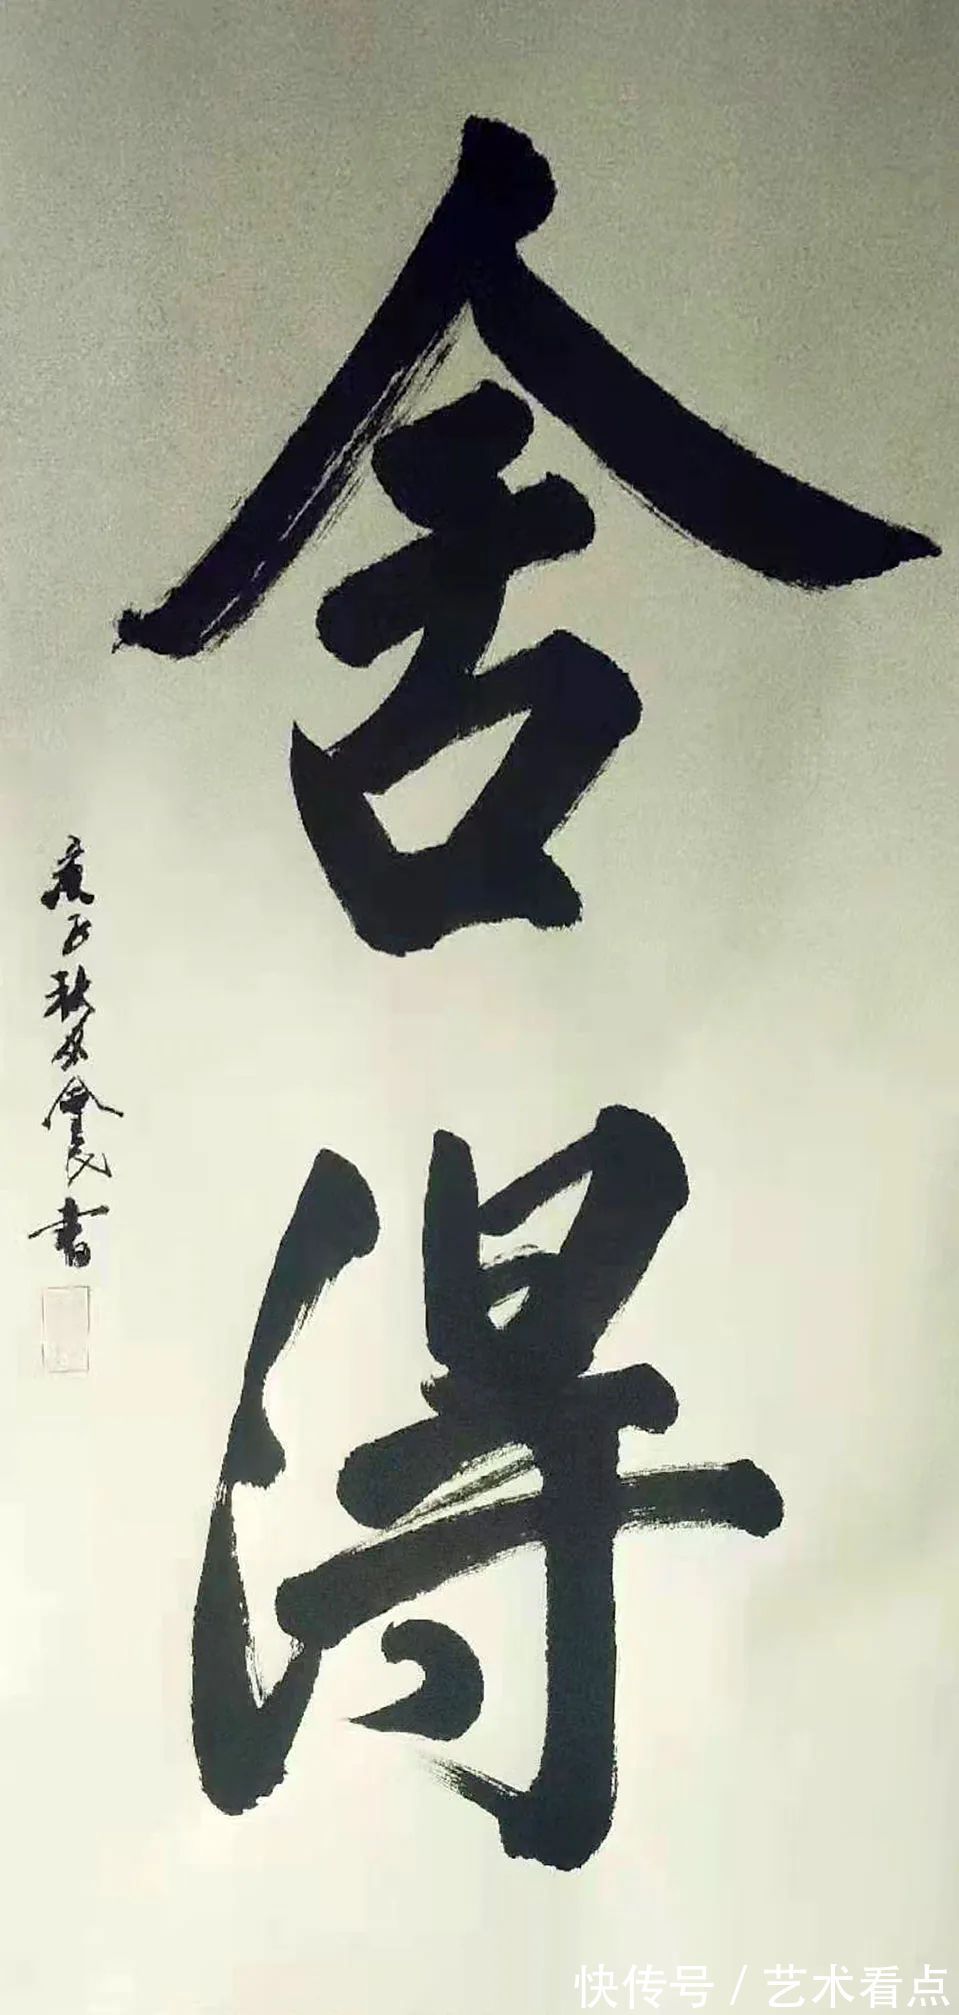 舍得
庚子秋月金民書
快传号 / 艺术看点